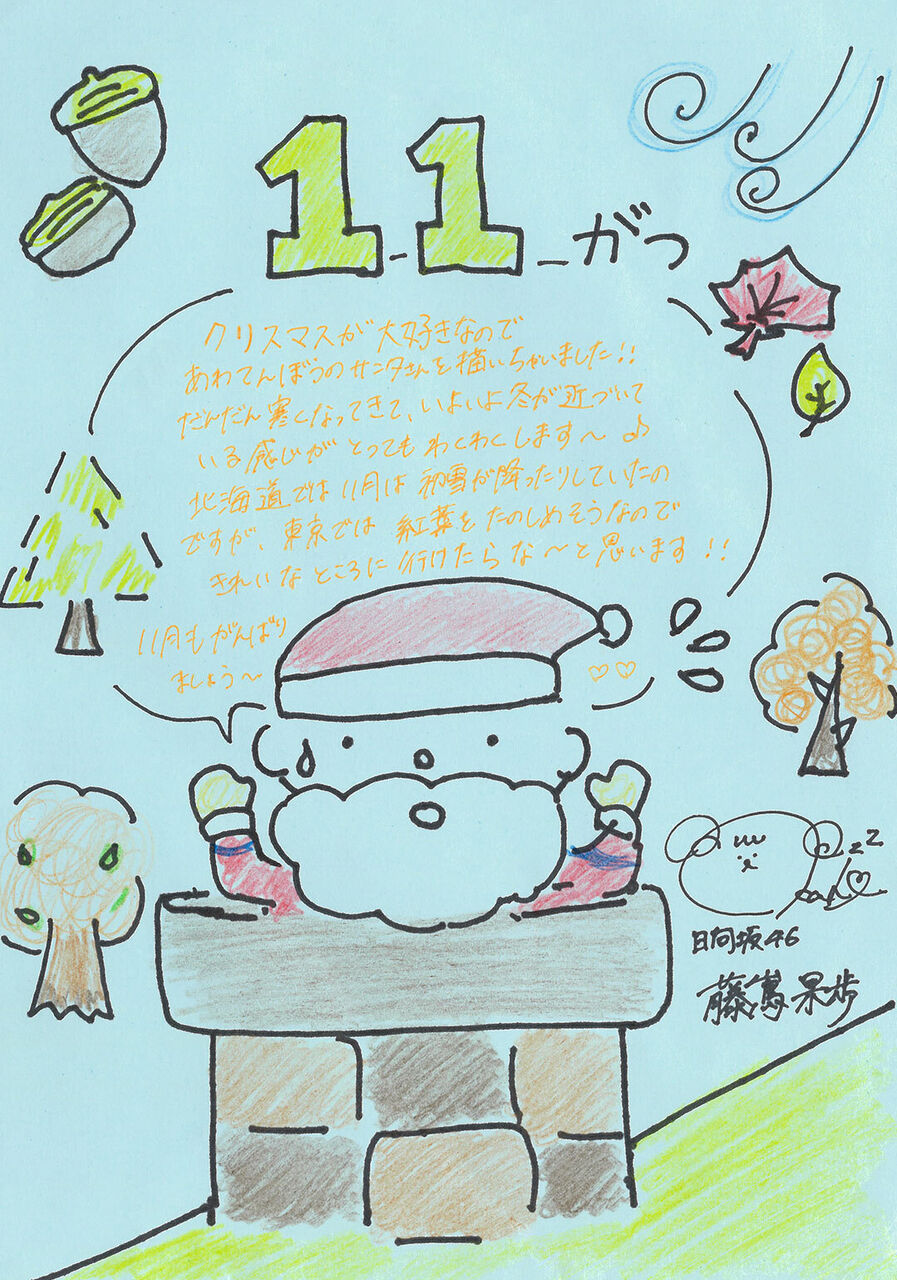 11-がつ
クリスマスが大好きなので
あわてんぼうのサンタさんを描いちゃいました!!
だんだん寒くなってきて、いよいよ冬が近づいて
いる感じがとってもわくわくします〜♪
北海道では11月は初雪が降ったりしていたの
ですが、東京では紅葉をたのしめそうなので
きれいなところに行けたらな〜と思います!!
11月もがんばり
ましょう〜
♡♡
日向坂46
藤嶌果歩